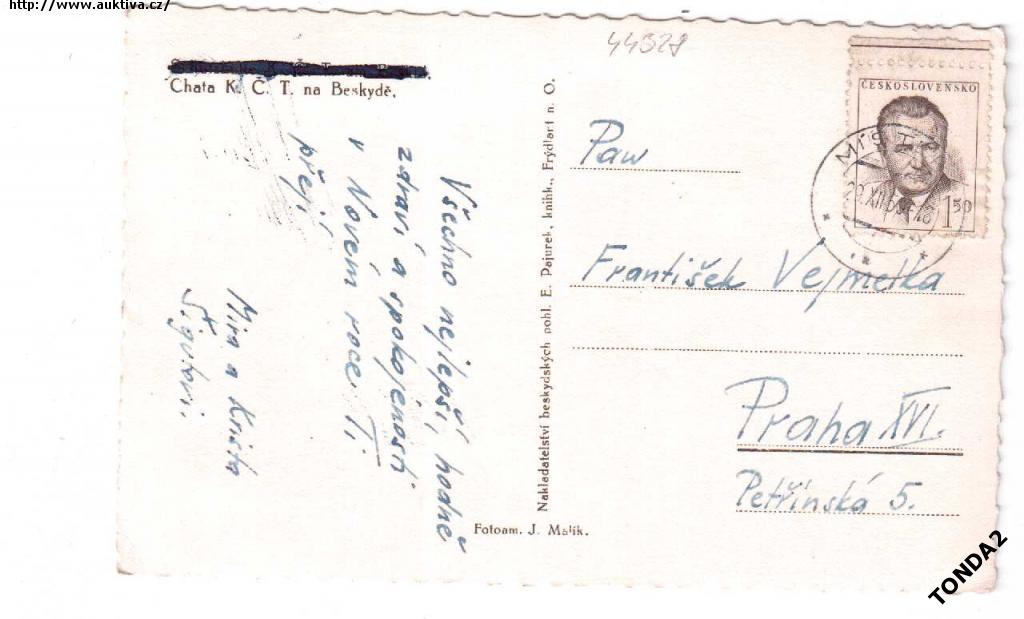 http://www.auktiva.cz/
44328
Chata K. Č. T. na Beskydě.
Všechno nejlepší, hodně
zdraví a spokojenosti
v Novém roce Ti
přejí
Mira a Krista
Šigutovi.
Nakladatelství beskydských pohl. E. Pajurek, knihk., Frýdlant n. O.
Fotoam. J. Malík.
ČESKOSLOVENSKO
1 50
Pan
František Vejmelka
Praha XVI.
Petřínská 5.
TONDA2